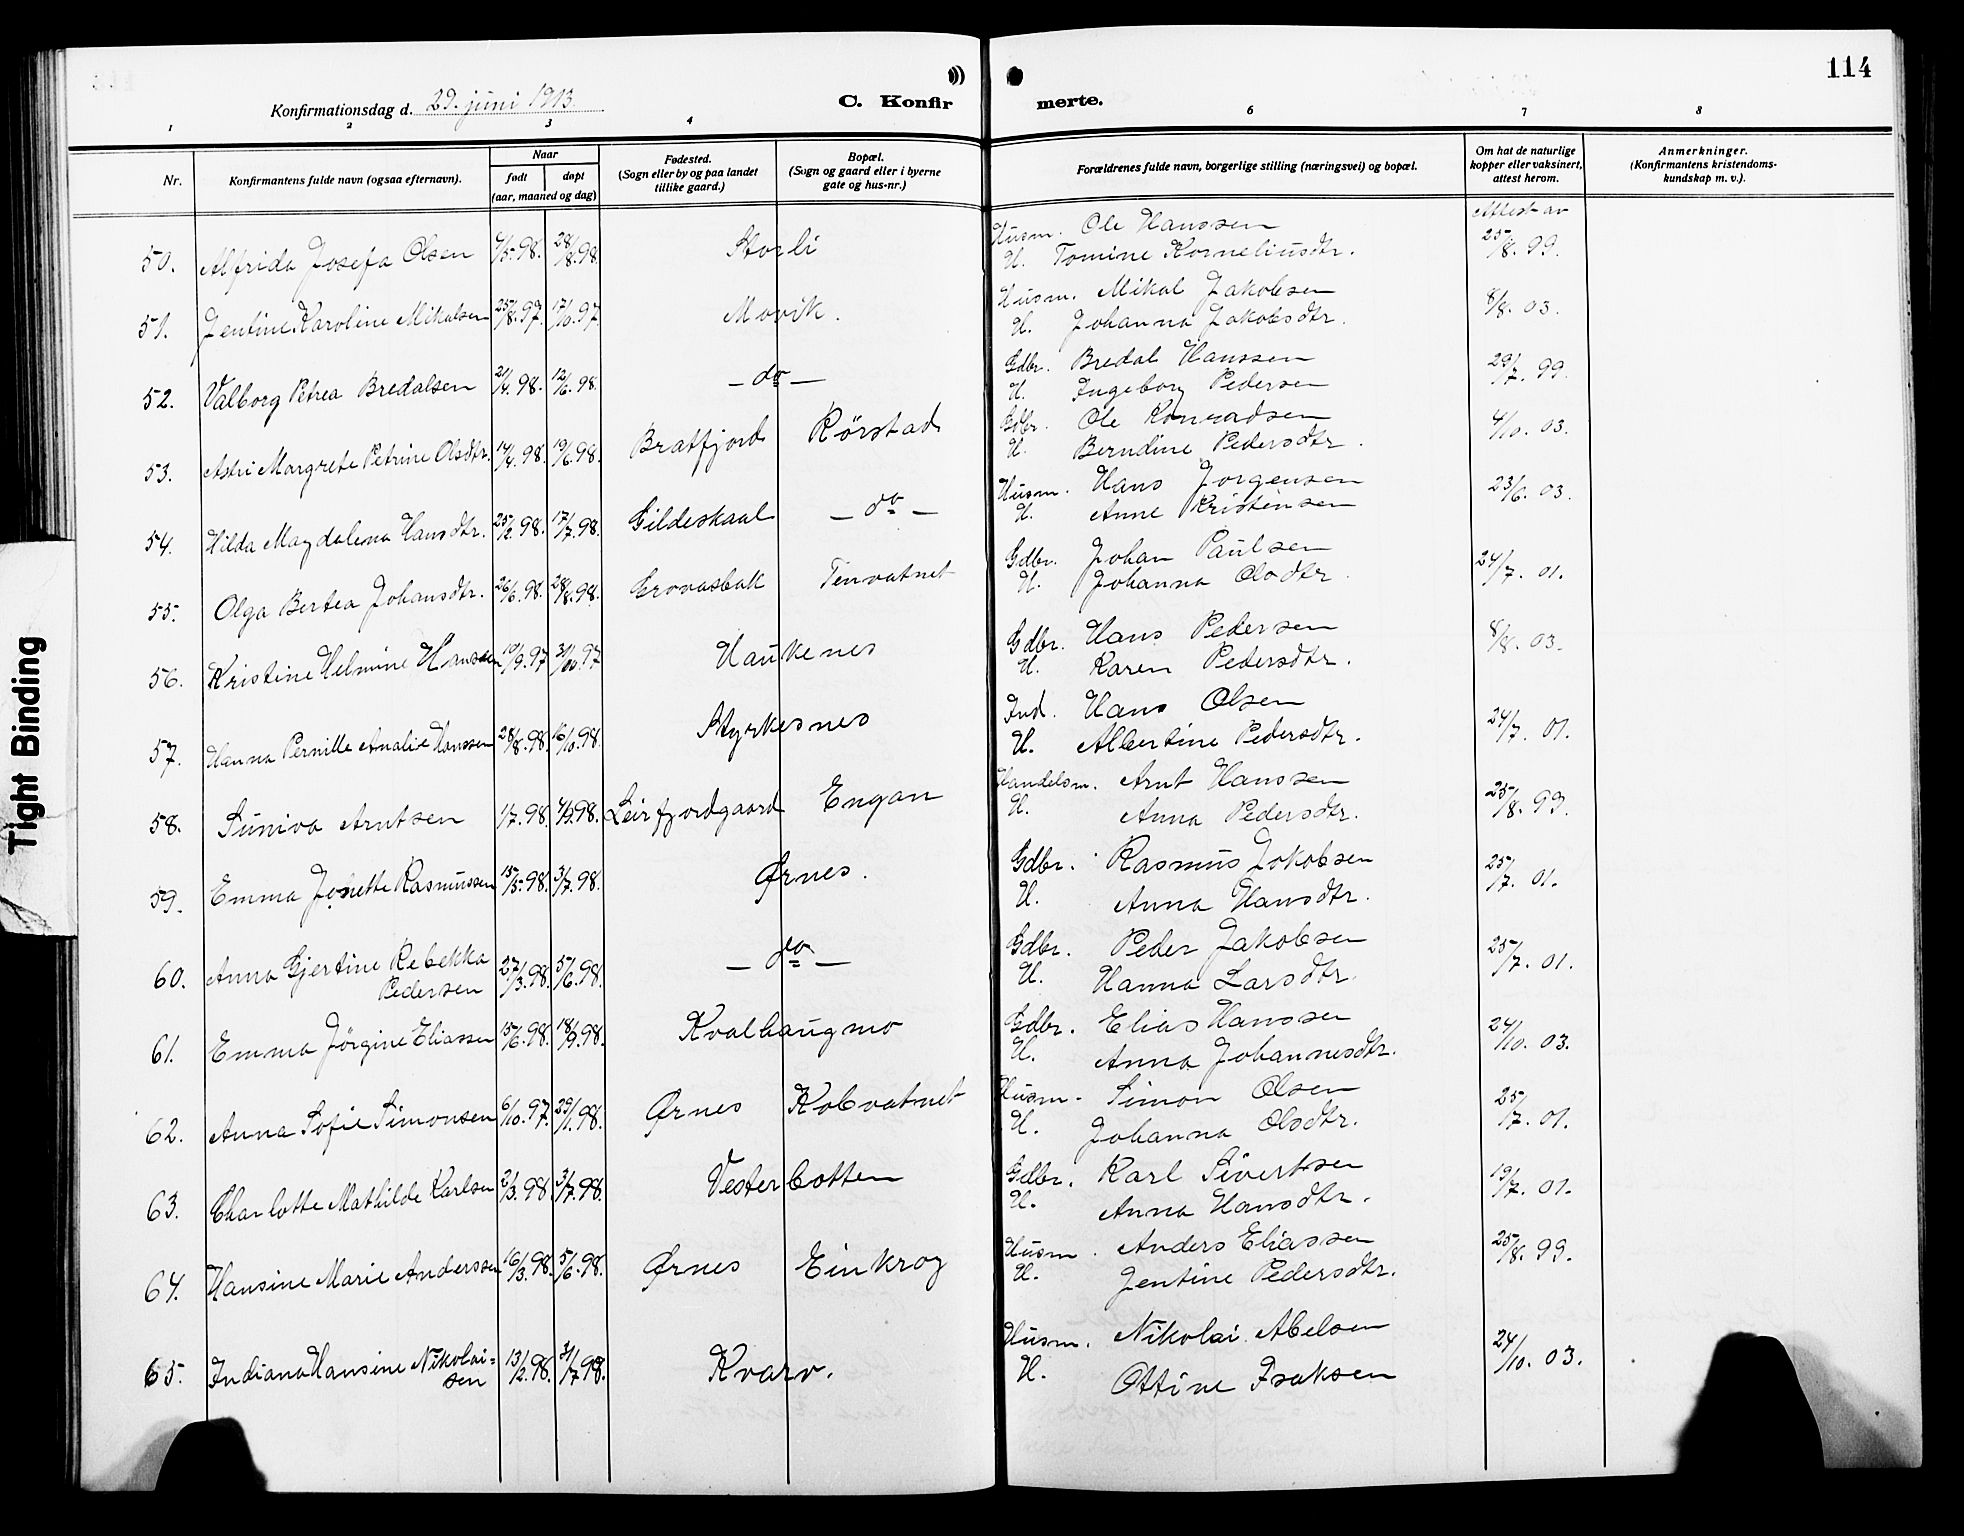 114
Konfirmationsdag d. 29. juni 1913.
C. Konfir merte.
1 2 3 4 6 7 8
Nr.
Konfirmantens fulde navn (ogsaa efternavn).
Naar
født døpt
(aar, maaned og dag)
Fødested.
(Sogn eller by og paa landet
tillike gaard.)
Bopæl.
(Sogn og gaard eller i byerne
gate og hus-nr.)
Forældrenes fulde navn, borgerlige stilling (næringsvei) og bopæl.
Om hat de naturlige
kopper eller vaksinert,
attest herom.
Anmerkninger.
(Konfirmantens kristendoms-
kundskap m. v.).
Attest av
50. Alfrida Josefa Olsen 4/5.98. 28/8.98. Storli Husm. Ole Hanssen 25/8.99.
H. Tomine Korneliusdtr.
51. Jentine Karoline Mikalsen 25/8.97. 17/10.97. Movik. Husm. Mikal Jakobsen 8/8.03.
H. Johanna Jakobsdtr.
52. Valborg Petrea Bredalsen 21/4.98. 12/6.98. — do — Gdbr. Bredal Hanssen 29/7.99.
H. Ingeborg Pedersen
53. Astri Margrete Petrine Olsdtr. 14/4.98. 19/6.98. Bratfjord Rørstad Gdbr. Ole Konradsen 4/10.03.
H. Berndine Pedersdtr.
54. Hilda Magdalena Hansdtr. 25/2.98. 17/7.98. Gildeskaal — do — Husm. Hans Jørgensen 23/6.03.
H. Anne Kristensen
55. Olga Bertea Johansdtr. 26/6.98. 28/8.98. Grovasbak Tenvatnet Gdbr. Johan Paulsen 24/7.01.
H. Johanna Olsdtr.
56. Kristine Helmine Hanssen 10/9.97 31/10.97 Haukenes Gdbr. Hans Pedersen 8/8.03.
H. Karen Pedersdtr.
57. Hanna Pernille Amalie Hanssen 28/8.98. 16/10.98. Styrkesnes Ind. Hans Olsen 24/7.01.
H. Albertine Pedersdtr.
58. Suniva Arntsen 1/7.98. 4/9.98. Leirfjordgaard Engan Handelsm. Arnt Hanssen 25/8.99.
H. Anna Pedersdtr.
59. Emma Jonette Rasmussen 15/5.98. 3/7.98. Ørnes. Gdbr. Rasmus Jakobsen 25/7.01.
H. Anna Hansdtr.
60. Anna Gjertine Rebekka
Pedersen 27/3.98. 5/6.98. — do — Gdbr. Peder Jakobsen 25/7.01.
H. Hanna Larsdtr.
61. Emma Jørgine Eliassen 15/6.98. 18/9.98. Kvalhaugmo Gdbr. Elias Hanssen 24/10.03.
H. Anna Johannesdtr.
62. Anna Sofie Simonsen 6/10.97. 29/1.98. Ørnes Kobvatnet Husm. Simon Olsen 25/7.01.
H. Johanna Olsdtr.
63. Charlotte Mathilde Karlsen 2/3.98. 3/7.98. Vesterbotten Gdbr. Karl Sivertsen 19/7.01.
H. Anna Hansdtr.
64. Hansine Marie Anderssen 16/3.98. 5/6.98. Ørnes Einkrog Husm. Anders Eliassen 25/8.99.
H. Jentine Pedersdtr.
65. Indiana Hansine Nikolai=
sen 13/2.98. 31/7.98. Kvarv. Husm. Nikolai Abelsen 24/10.03.
H. Ottine Isaksen
Tight Binding